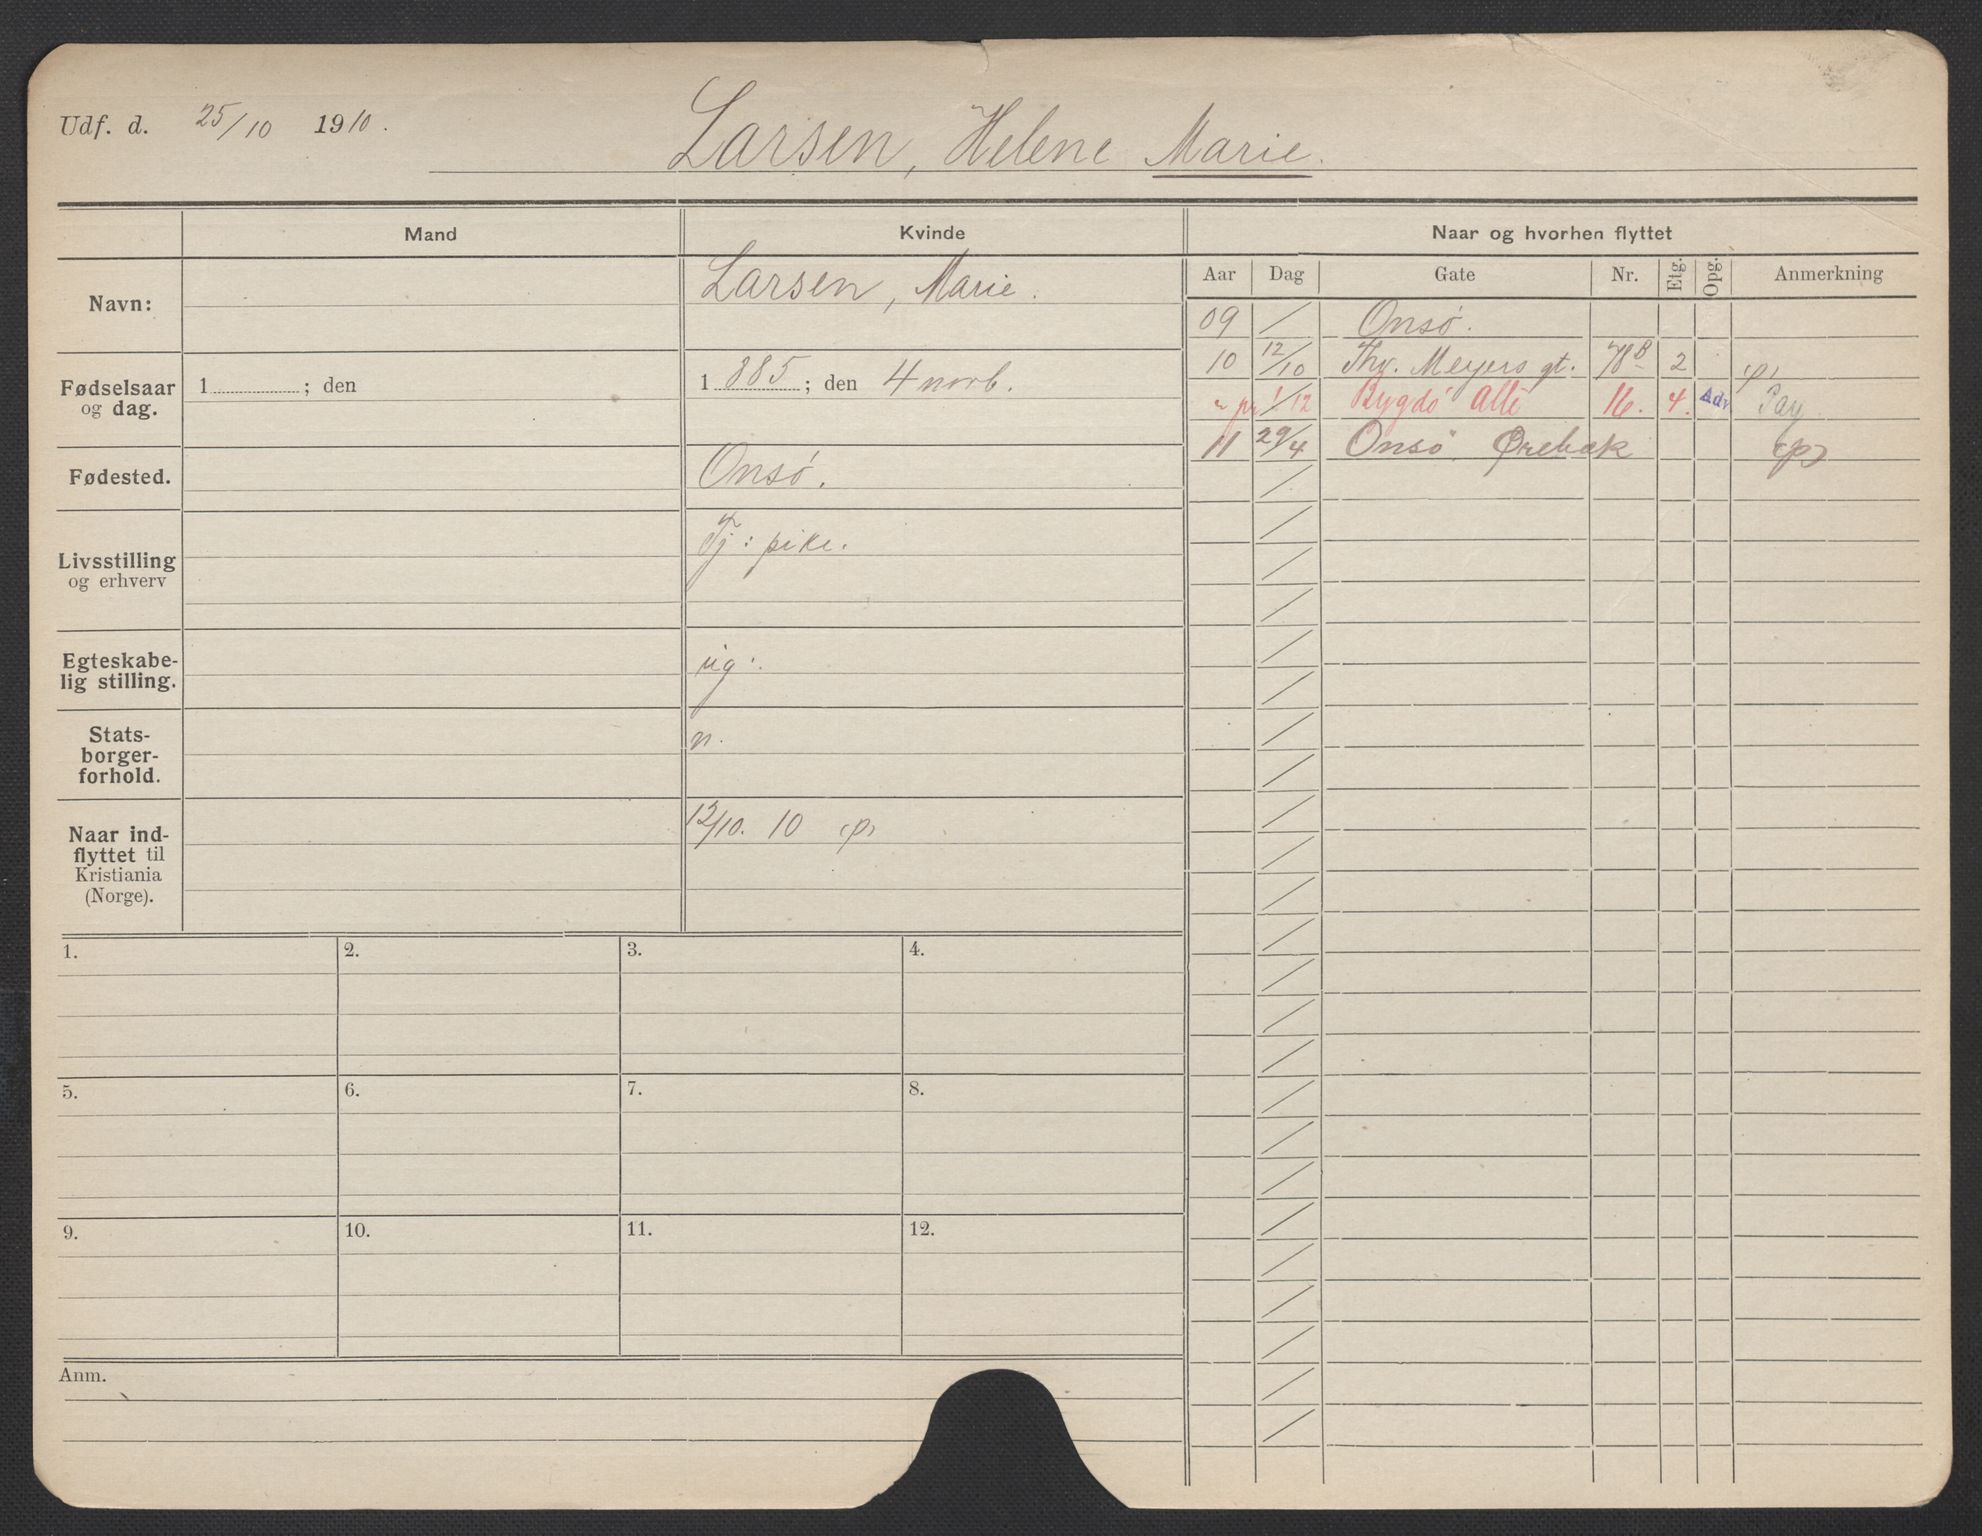 Udf. d. 25/10 1910.
Larsen, Helene Marie.
Mand
Kvinde
Naar og hvorhen flyttet
Navn:
Larsen, Marie.
Aar Dag Gate Nr. Etg. Opg. Anmerkning
09 / Onsö.
10 12/10 Thv. Meyers gt. 78B 2 (p)
" pr 1/12 Bygdö Allé 16. 4. Adr.
11 29/4 Onsö Ørebæk (p)
Fødselsaar og dag.
1 ; den
1 885 ; den 4 novb.
Fødested.
Onsó.
Livsstilling og erhverv
Tj: pike.
Egteskabe-
lig stilling.
ug:
Stats-
borger-
forhold.
n.
Naar ind-
flyttet til
Kristiania
(Norge).
12/10. 10 (p)
1. 2. 3. 4.
5. 6. 7. 8.
9. 10. 11. 12.
Anm.